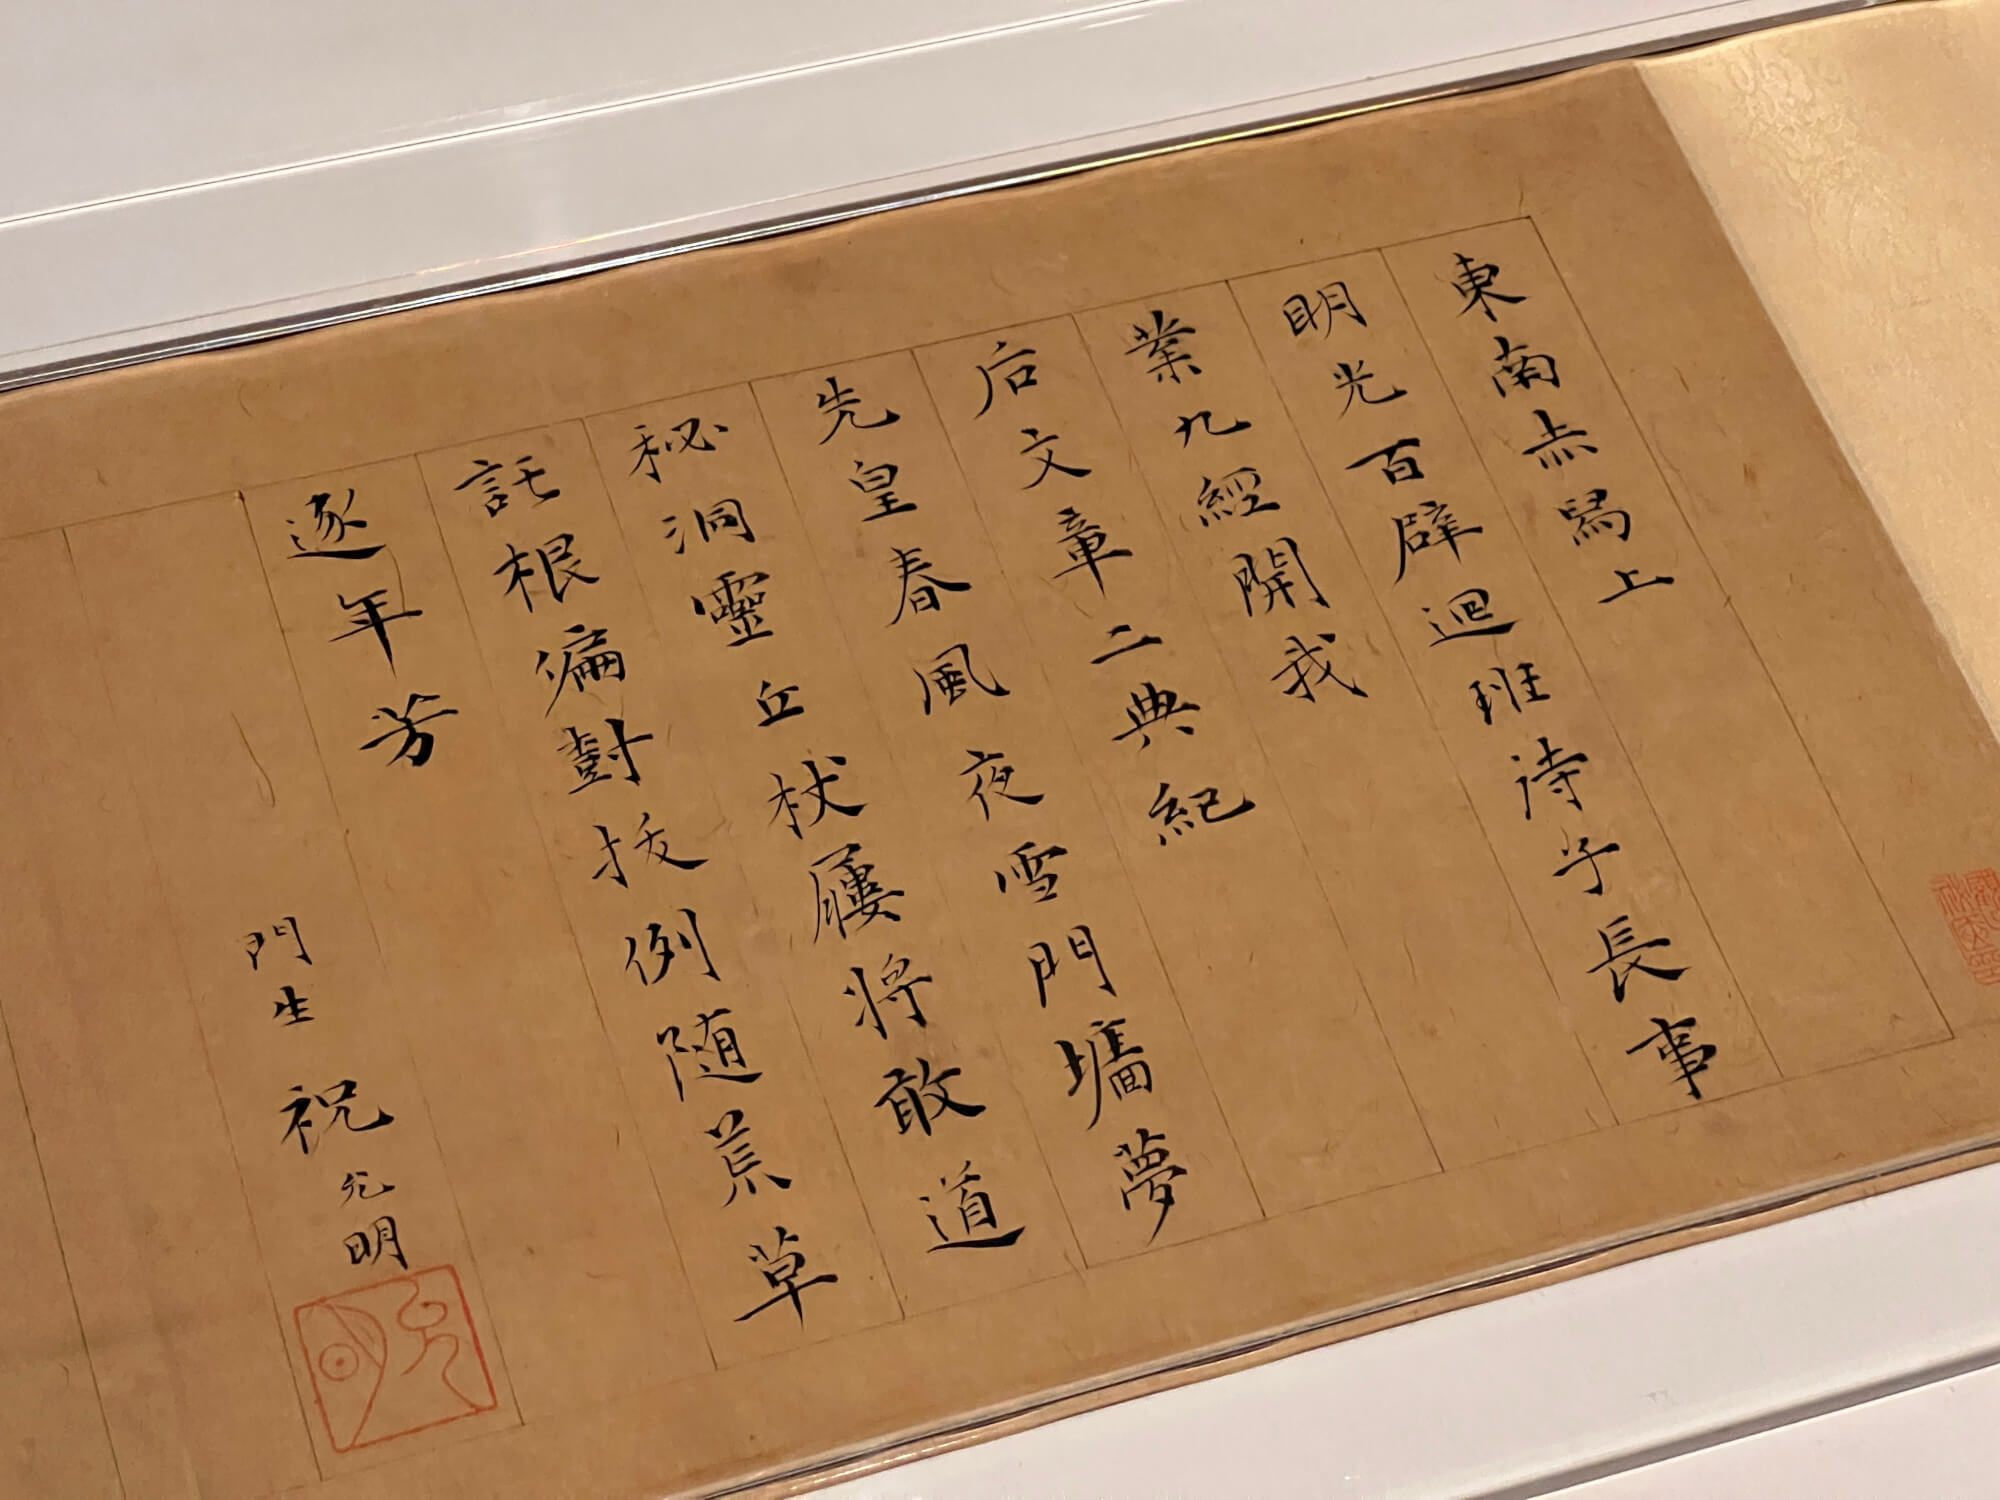 東南赤舄上
明光百辟迴班待子長事
業九經開我
后文章二典紀
先皇春風夜雪門墻夢
秘洞靈丘杖屨將敢道
託根偏對拔例随荒草
逐年芳
門生祝允明
允明